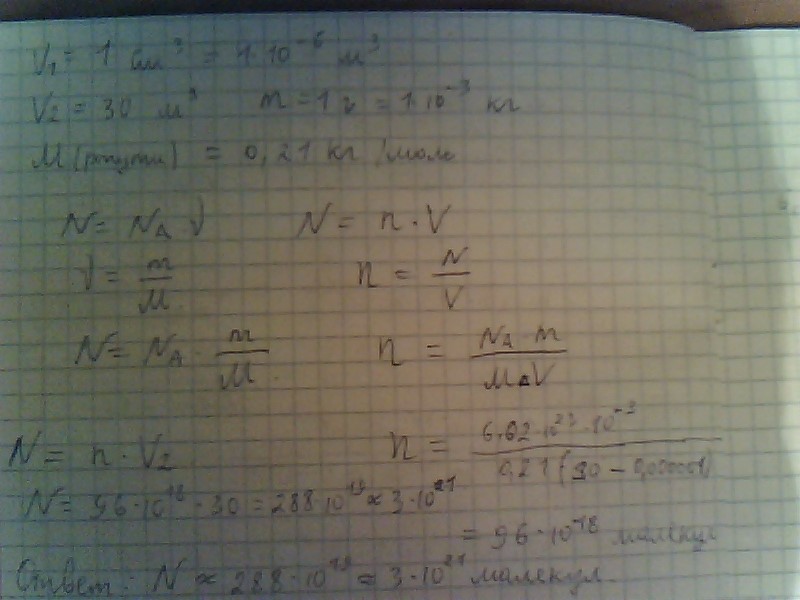 V₁ = 1 см³ = 1·10⁻⁶ м³
V₂ = 30 м³ m = 1 г = 1·10⁻³ кг
M (ртути) = 0,21 кг/моль
N = N_A ν N = n·V
ν = m/M n = N/V
N = N_A · m/M n = N_A m / M ΔV
N = n·V₂ n = 6,02·10²³·10⁻³ / 0,21 (30 − 0,000001)
N = 96·10¹⁸·30 = 288·10¹⁹ ≈ 3·10²¹
= 96·10⁻¹⁸ малекул
Ответ: N ≈ 288·10¹⁹ ≈ 3·10²¹ малекул.